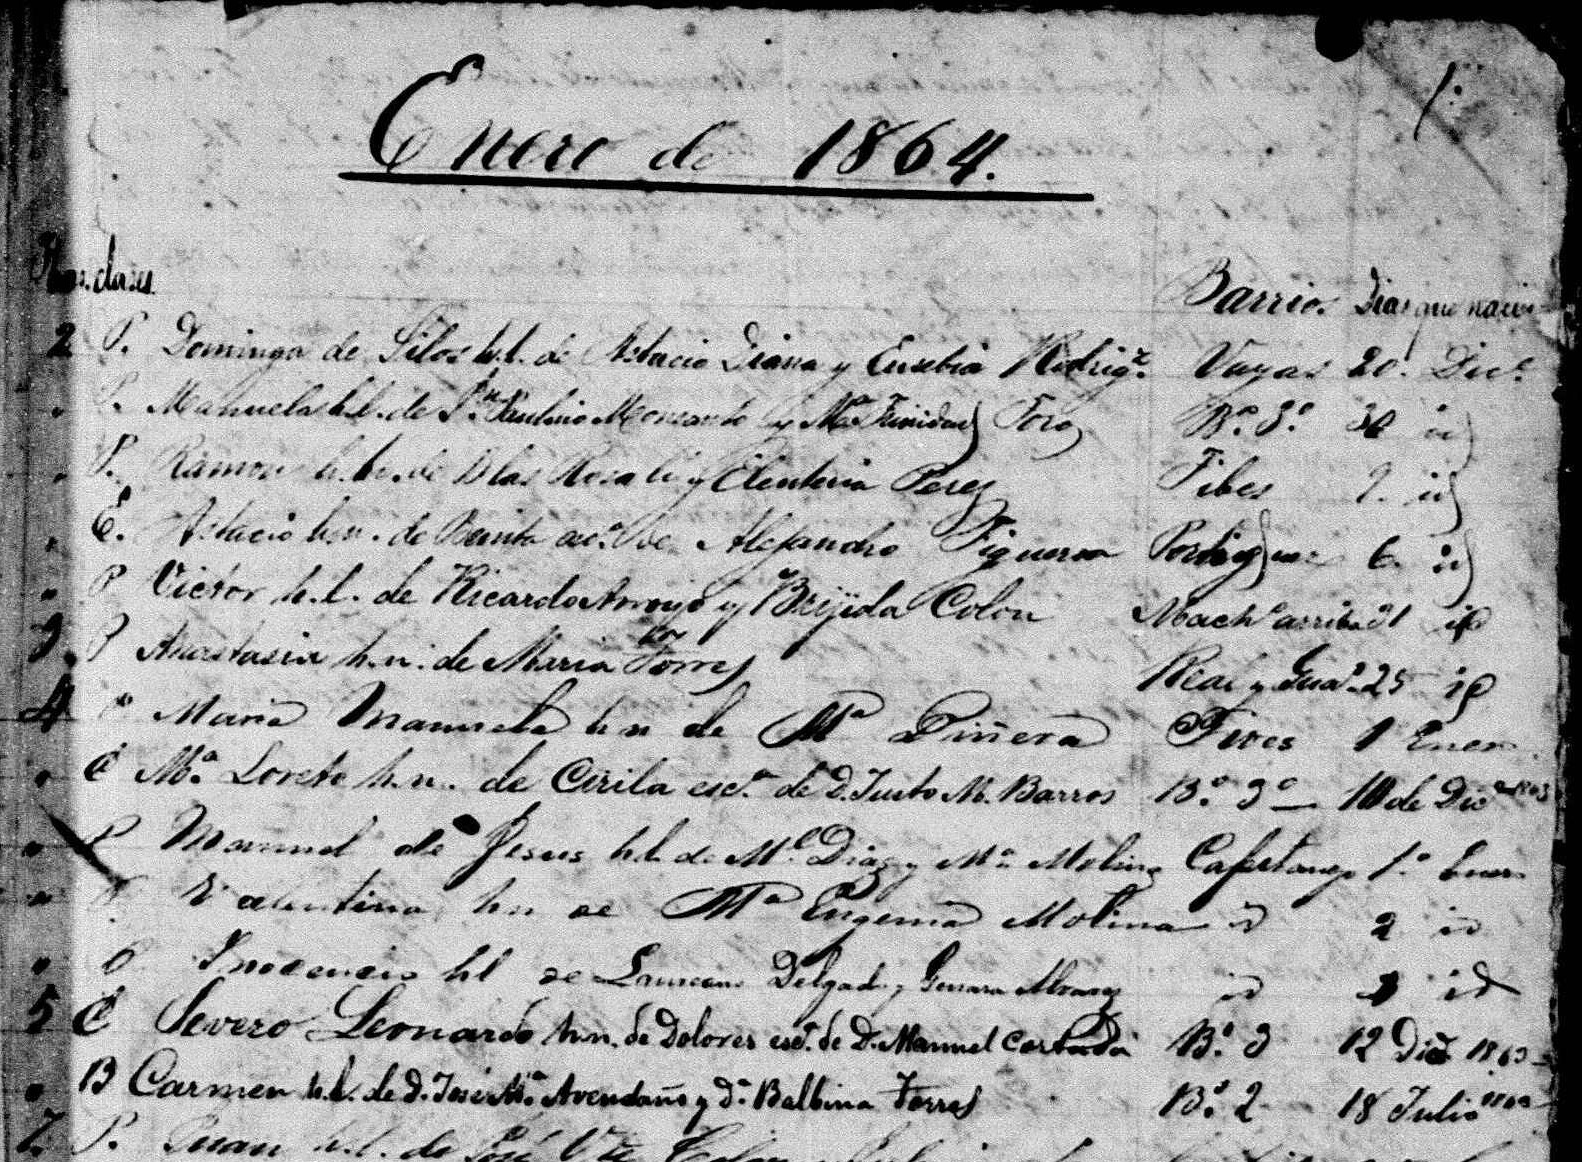 1.
Enero de 1864.
clases. Barrios Dias que nacio
2 P. Domingo de Silos h.l. de Astacio Diana y Eusebia Rodrigz. Vayas 20. Dice.
" P. Manuela h.l. de Paulino Moncanto y Ma. Trinidad Toro Bo. 3o. 30 id
" P. Ramon h.l. de Blas Rosali y Eleuteria Perez Tibes 9. id
" E. Astacio h.n. de Benita de Alejandro Figueroa Portugues 6. id
" P Victor h.l. de Ricardo Arroyo y Brijida Colon Macho. arriba 31 id
3 P Anastasia h.n. de Maria Torres Real y 25 id
4 P Maria Manuela hn de Ma Piñera Tives 1 Enero
" E Ma. Loreto h.n. de Cirila esc.a de D. Justo M. Barros Bo. 3o 10 de Dice 1863
" P Manuel de Jesus h.l. de Ml. Diaz y Ma Molina 1o. Enero
" P Valentina hn de Ma Eugenia Molina id 2 id
" P Inocencio hl de Laureano Delgado y Genara Alvarez id 3 id
5 E Severo Leonardo h.n. de Dolores esc.a de D. Manuel Cortada Bo. 3 12 Dice 1863
" B Carmen h.l. de D. José Ma. Avendaño y Da. Balbina Torres Bo. 2 18 Julio
7. P. Juan h.l. de José Vte Colon